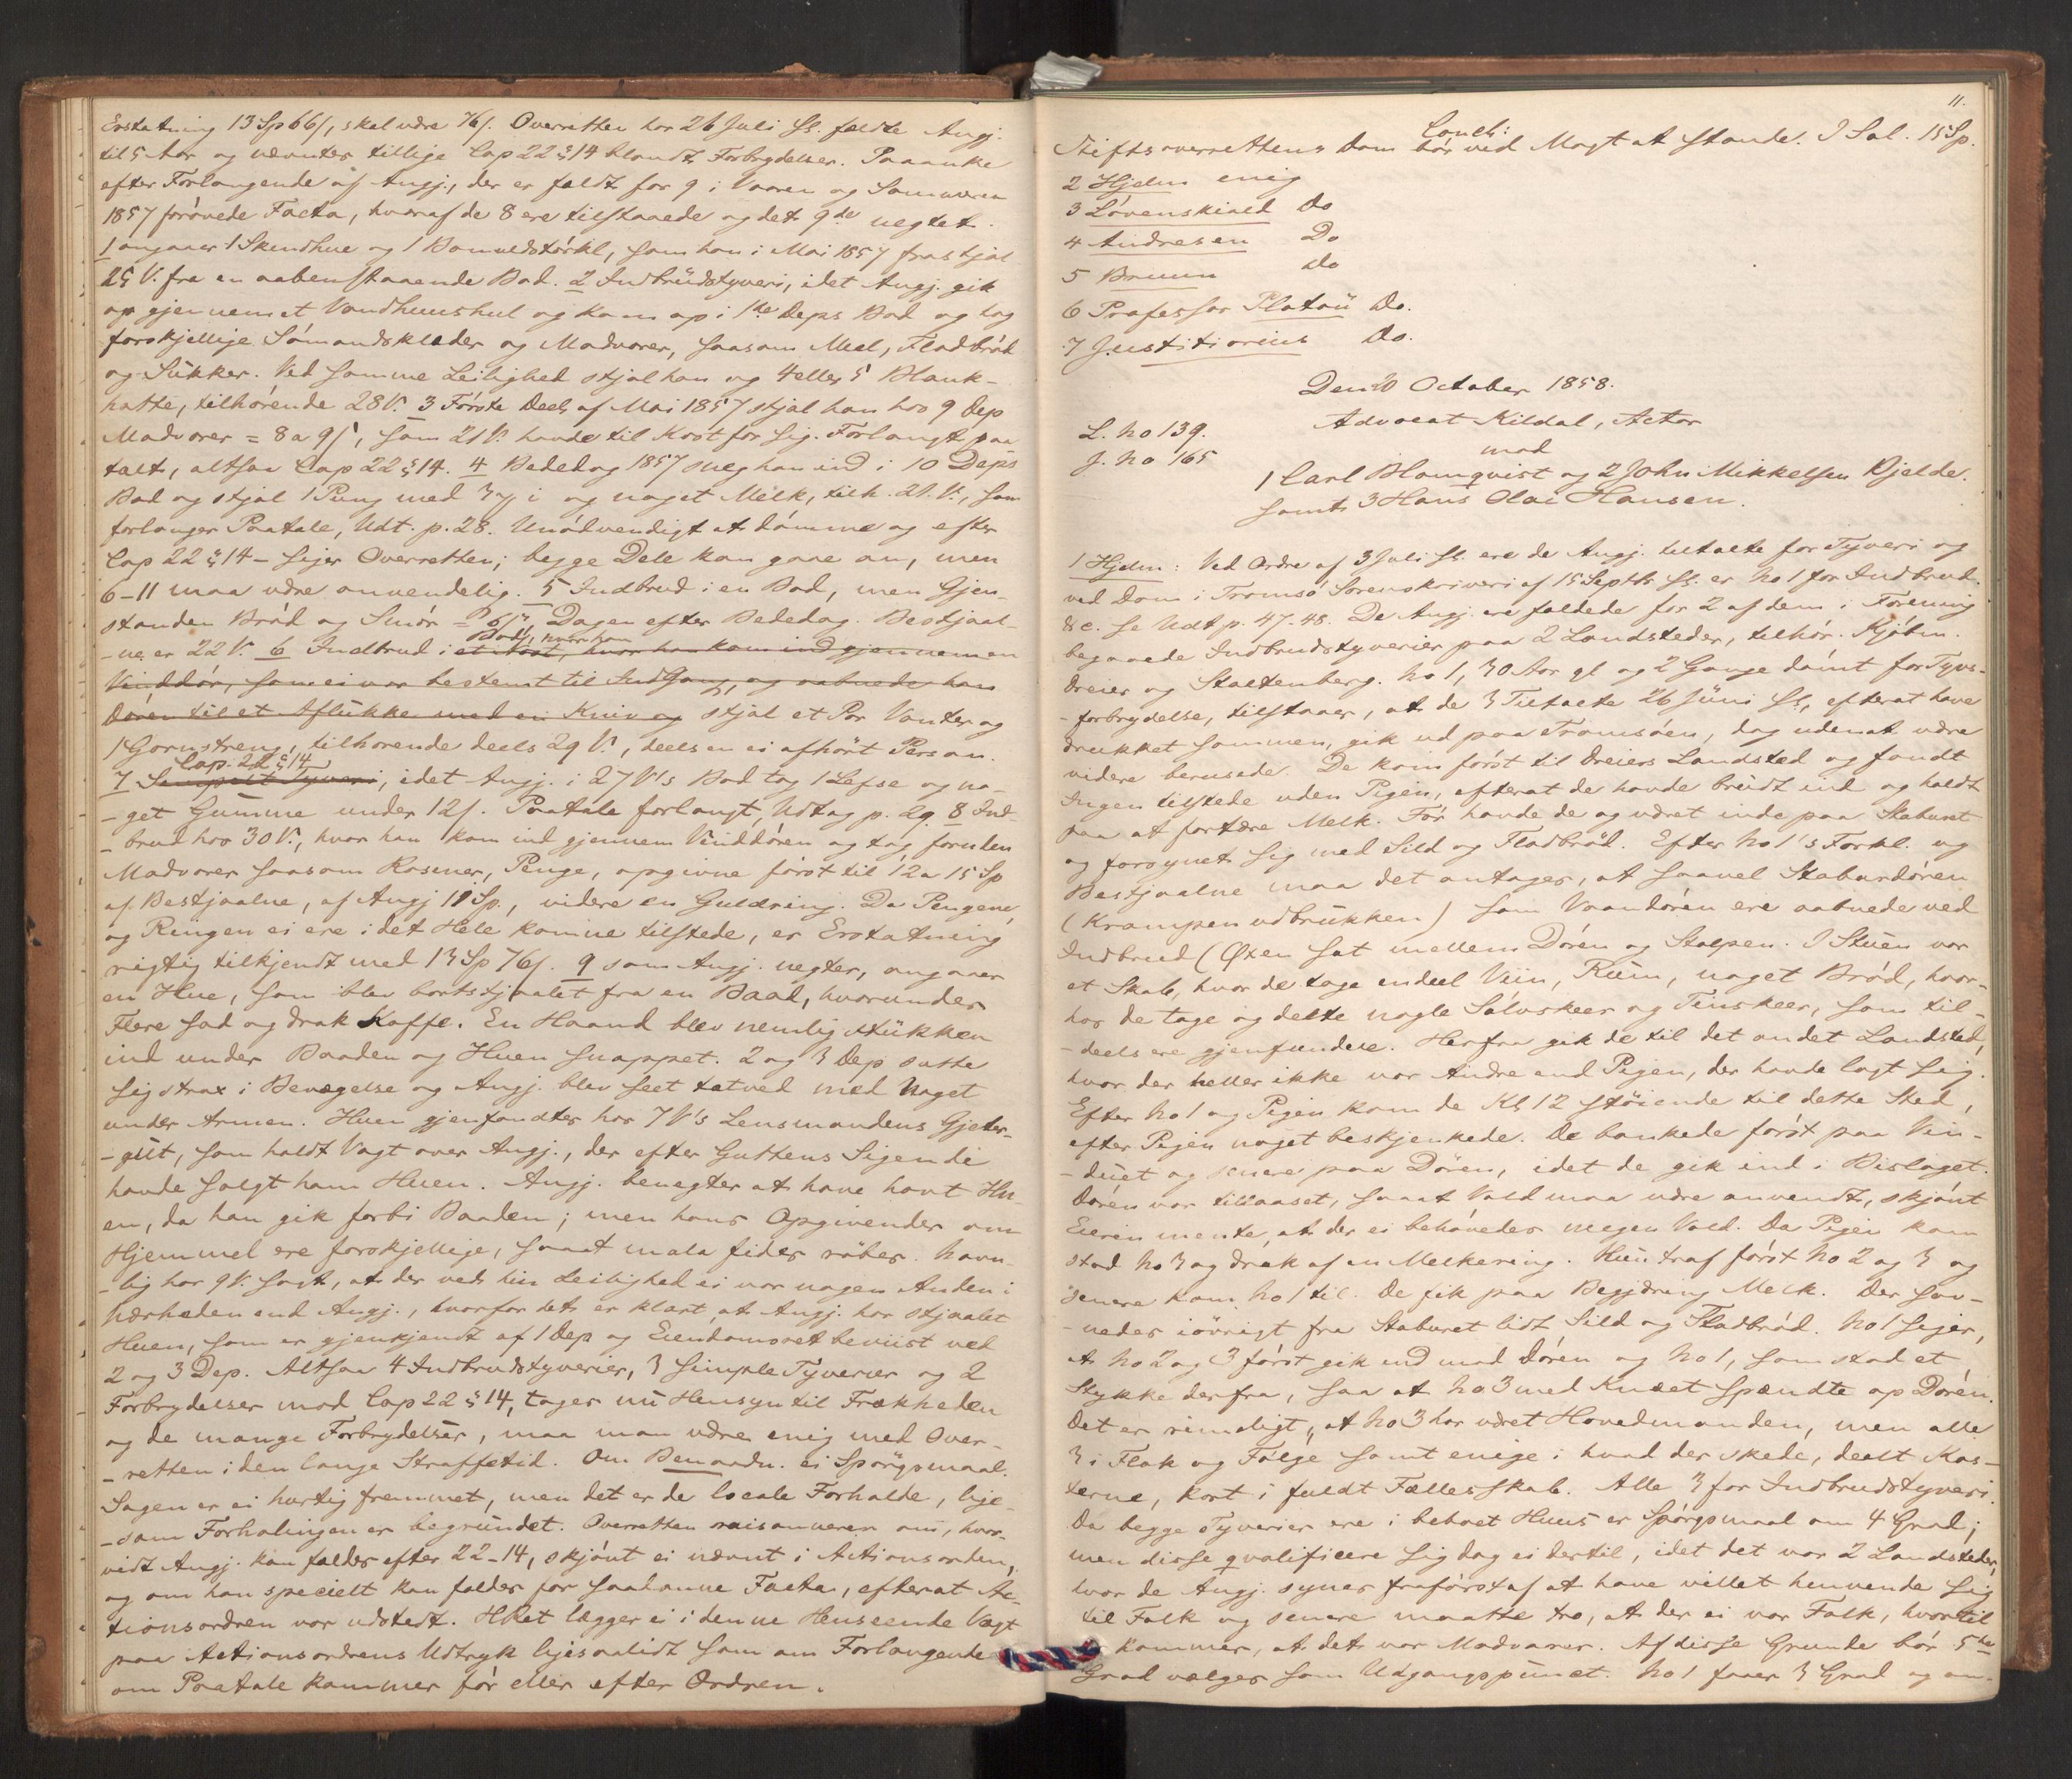 Erstatning 13 Sp 66 s, skal være 76 s. Overretten har 26 Juli sl. fældt Angj.
til 5 Aar og nævntes tillige Cap 22 § 14 blandt Forbrydelser. Paaanke
efter Forlangende af Angj., der er fældt for 9 i Vaaren og Sommeren
1857 forövede Facta, hvoraf de 8 ere tilstaaede og det 9de negtet.
1 angaaer 1 Skindhue og 1 Bomuldstörkl, som han i Mai 1857 frastjal
25 V. fra en aabenstaaende Bod. 2 Indbrudstyveri, idet Angj. gik
op gjennem et Vandhuushul og kom op i 1ste Deps Bod og tog
forskjellige Sömandsklæder og Madvarer, saasom Meel, Fladbröd
og Sukker. Ved samme Leilighed stjal han og 4 eller 5 Blank-
hatte, tilhörende 28 V. 3 Förste Deel af Mai 1857 stjal han hos 9 Dep
Madvarer = 8 a 9 s, som 21 V. havde til Kost for sig. Forlangt paa
talt, altsaa Cap 22 § 14. 4 Bededag 1857 sneg han ind i 10 Deps
Bod og stjal 1 Pung med 3 s i og noget Melk, tilh. 21. V., som
forlanger Paatale, Udt. p. 28. Unödvendigt at dömme og efter
Cap 22 § 14 - siger Overretten; begge Dele kan gaae an, men
6-11 maa være anvendelig. 5 Indbrud i en Bod, men Gjen-
standen Bröd og Smör = 6 s, Dagen efter Bededag. Bestjaal-
-ne er 22 V. 6 Indbrud i et Nöst, hvor han kom ind gjennem en
Bod, hvor han
Vinddör, som ei var bestemt til Indgang, og aabnede han
Dören til et Aflukke med en Kniv og stjal et Par Vanter og
1 Garnstreng, tilhörende deels 29 V., deels en ei afhört Person.
Cap. 22 § 14
7 Simpelt Tyveri, idet Angj. i 27 V's Bod tog 1 Lefse og no-
-get Gumme under 12 s. Paatale forlangt, Udtog p. 29. 8 Ind-
-brud hos 30 V., hvor han kom ind gjennem Vinddören og tog foruden
Madvarer saasom Rosiner, Penge, opgivne först til 12 a 15 Sp
af Bestjaalne, af Angj 11 Sp., videre en Guldring. Da Pengene
og Ringen ei ere i det Hele komne tilstede, er Erstatning
rigtig tilkjendt med 13 Sp 76 s. 9 som Angj. negter, angaaer
en Hue, som blev bortstjaalet fra en Baad, hvorunder
Flere sad og drak Kaffe. En Haand blev nemlig stukken
ind under Baaden og Huen snappet. 2 og 3 Dep satte
sig strax i Bevægelse og Angj. blev seet tætved med Noget
under Armen. Huen gjenfandtes hos 7 V's Lensmandens Gjeter-
-gut, som holdt Vagt over Angj., der efter Guttens Sigende
havde solgt ham Huen. Angj. benegter at have havt Hu-
en, da han gik forbi Baaden; men hans Opgivender om
Hjemmel ere forskjellige, saaat mala fides röbes. Navn-
-lig har 9 V. sagt, at der ved hin Leilighed ei var nogen Anden i
Nærheden end Angj., hvorfor det er klart, at Angj. har stjaalet
Huen, som er gjenkjendt af 1 Dep og Eiendomsret beviist ved
2 og 3 Dep. Altsaa 4 Indbrudstyverier, 3 simple Tyverier og 2
Forbrydelser mod Cap 22 § 14, tages nu Hensyn til Frækheden
og de mange Forbrydelser, maa man være enig med Over-
-retten i den lange Straffetid. Om Benaadn. ei Spörgsmaal.
Sagen er ei hurtig fremmet, men det er de locale Forholde, lige-
-som Forhalingen er begrundet. Overretten raisonnerer om, hvor-
vidt Angj. kan fældes efter 22-14, skjönt ei nævnt i Actionsorden,
og om han specielt kan fældes for saadanne Facta, efterat Ac-
tionsordren var udstedt. HRet lægger ei i denne Henseende Vægt
paa Actionsordrens Udtryk ligesaalidt som om Forlangende
om Paatale kommer för eller efter Ordren.
11.
Concl:
Stiftsoverrettens Dom bör ved Magt at stande. I Sal. 15 Sp.
2 Hjelm enig
3 Lövenskiold Do
4 Andresen Do
5 Bruun Do
6 Professor Platou Do.
7 Justitiarius Do.
Den 20 October 1858.
L. No 139. Advocat Kildal, Actor
J. No 165 mod
1 Carl Blomqvist og 2 John Mikkelsen Kjelde.
samt 3 Hans Olai Hansen.
1 Hjelm: Ved Ordre af 3 Juli sl. ere de Angj. tiltalte for Tyveri og
ved Dom i Tromsö Sorenskriveri af 15 Septb. sl. er No 1 for Indbrud.
&c. se Udt p. 47.48. De Angj. ere fældede for 2 af dem i Forening
begaaede Indbrudstyverier paa 2 Landsteder, tilhör. Kjöbm.
Dreier og Stoltenberg. No 1, 30 Aar gl og 2 Gange dömt for Tyvs-
-forbrydelse, tilstaaer, at de 3 Tiltalte 26 Juni sl., efterat have
drukket sammen, gik ud paa Tromsöen, dog uden at være
videre berusede. De kom först til Dreiers Landsted og fandt
Ingen tilstede uden Pigen, efterat de havde brudt ind og holdt
paa at fortære Melk. För havde de og været inde paa Staburet
og forsynet sig med Sild og Fladbröd. Efter No 1's Forkl. og
Bestjaalne maa det antages, at saavel Staburdören
(Krampen udbrukken) som Vaandören ere aabnede ved
Indbrud (Öxen sat mellem Dören og Stolpen. I Stuen var
et Skab, hvor de toge endeel Viin, Rum, noget Bröd, hvor-
hos de toge og deelte nogle Sölvskeer og Tinskeer, som til-
-deels ere gjenfundene. Herfra gik de til det andet Landsted,
hvor der heller ikke var Andre end Pigen, der havde lagt sig.
Efter No 1 og Pigen kom de Kl 12 stöiende til dette Sted,
efter Pigen noget beskjenkede. De bankede först paa Vin-
-duet og senere paa Dören, idet de gik ind i Bislaget.
Dören var tillaaset, saaat Vold maa være anvendt, skjönt
Eieren mente, at der ei behövedes megen Vold. Da Pigen kom
stod No 3 og drak af en Melkering. Hun traf först No 2 og 3 og
senere kom No 1 til. De fik paa Begjæring Melk. Der sav-
-nedes iövrigt fra Staburet lidt Sild og Fladbröd. No 1 siger,
at No 2 og 3 först gik ind mod Dören og No 1, som stod et
Stykke derfra, saa at No 3 med Knæet spændte op Dören.
Det er rimeligt, at No 3 har været Hovedmanden, men alle
3 i Flok og Fölge samt enige i hvad der skede, deelt Kos-
terne, kort i fuldt Fællesskab. Alle 3 for Indbrudstyveri.
Da begge Tyverier ere i beboet Huus er Spörgsmaal om 4 Grad;
men disse qvalificere sig dog ei dertil, idet det var 2 Landsteder,
hvor de Angj. synes fraförst af at have villet henvende sig
til Folk og senere maatte tro, at der ei var Folk, hvortil
kommer, at det var Madvarer. Af disse Grunde bör 5te
Grad vælges som Udgangspunct. No 1 faaer 3 Grad og an-